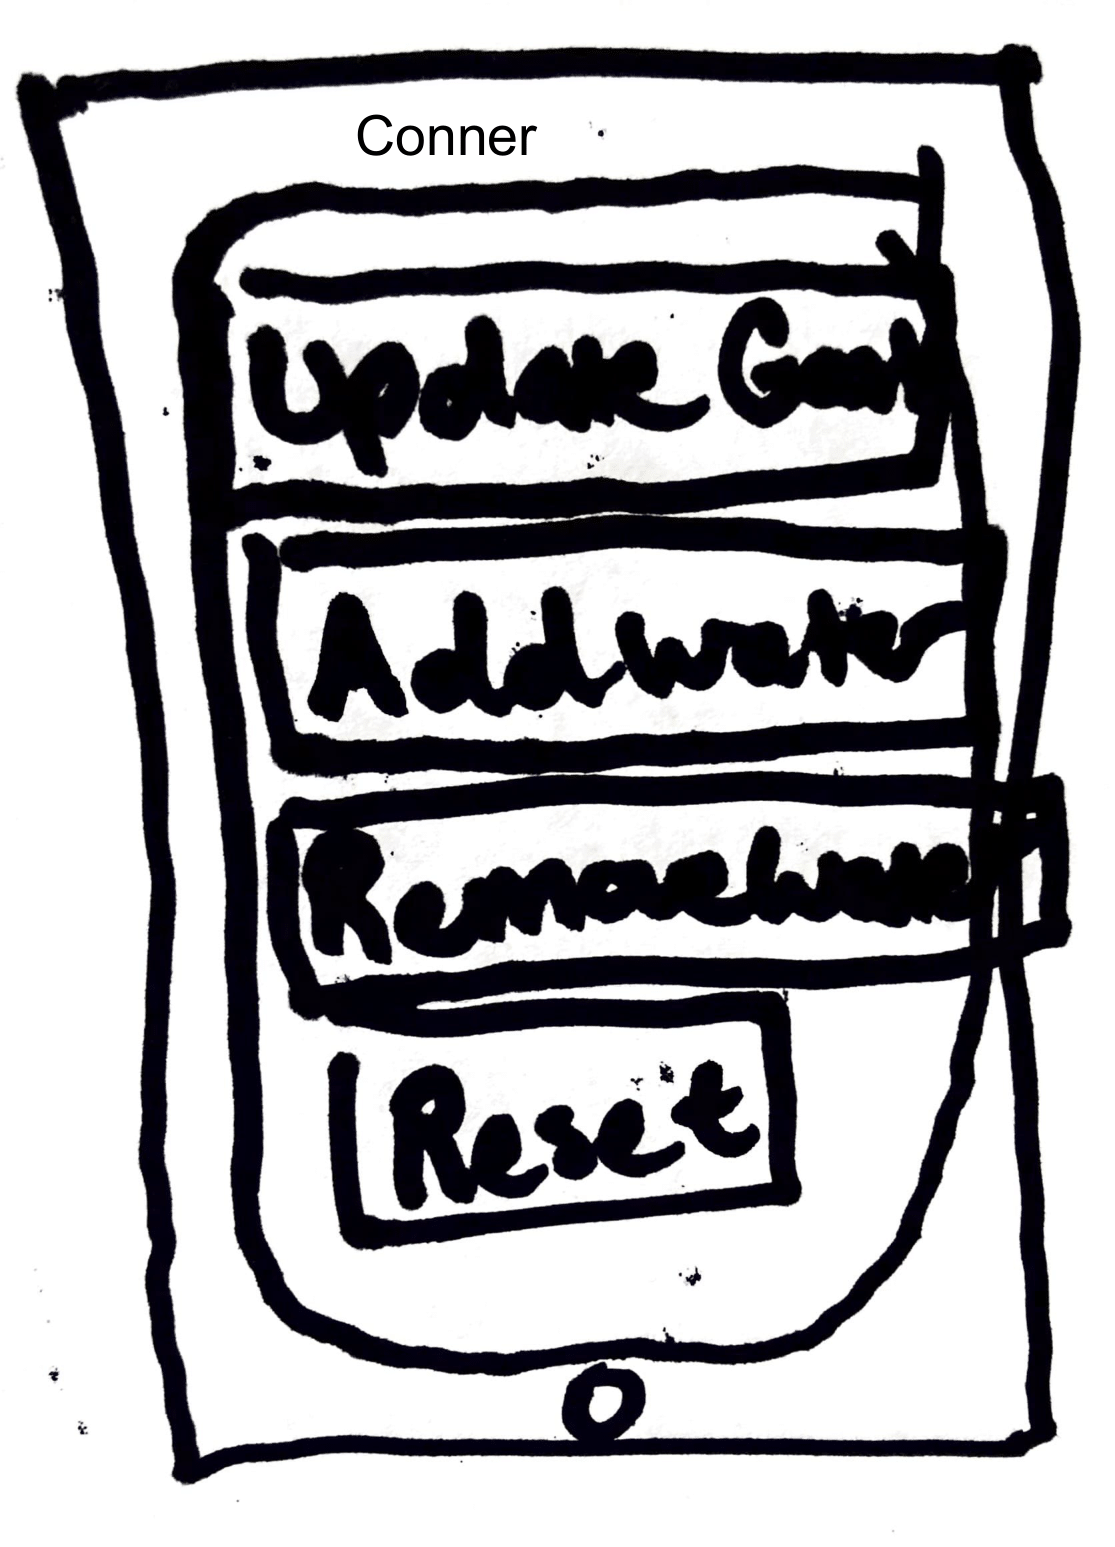 Conner
Update Goal
Add water
Remove water
Reset